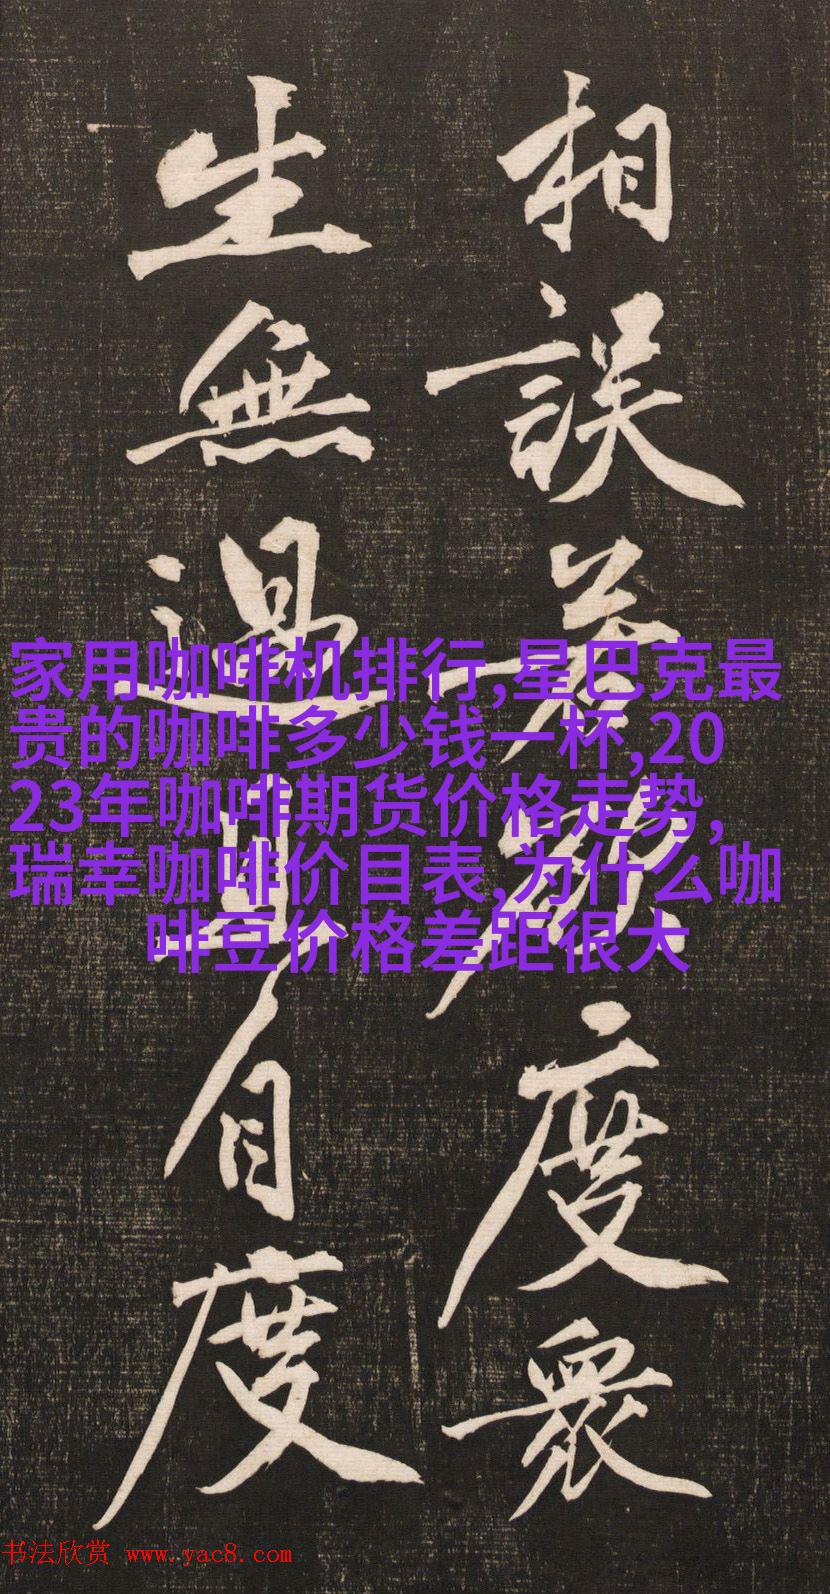 相誤若欲度衆
生無過且自度
家用咖啡机排行,星巴克最
贵的咖啡多少钱一杯,20
23年咖啡期货价格走势,
瑞幸咖啡价目表,为什么咖
啡豆价格差距很大
书法欣赏 www.yac8.com